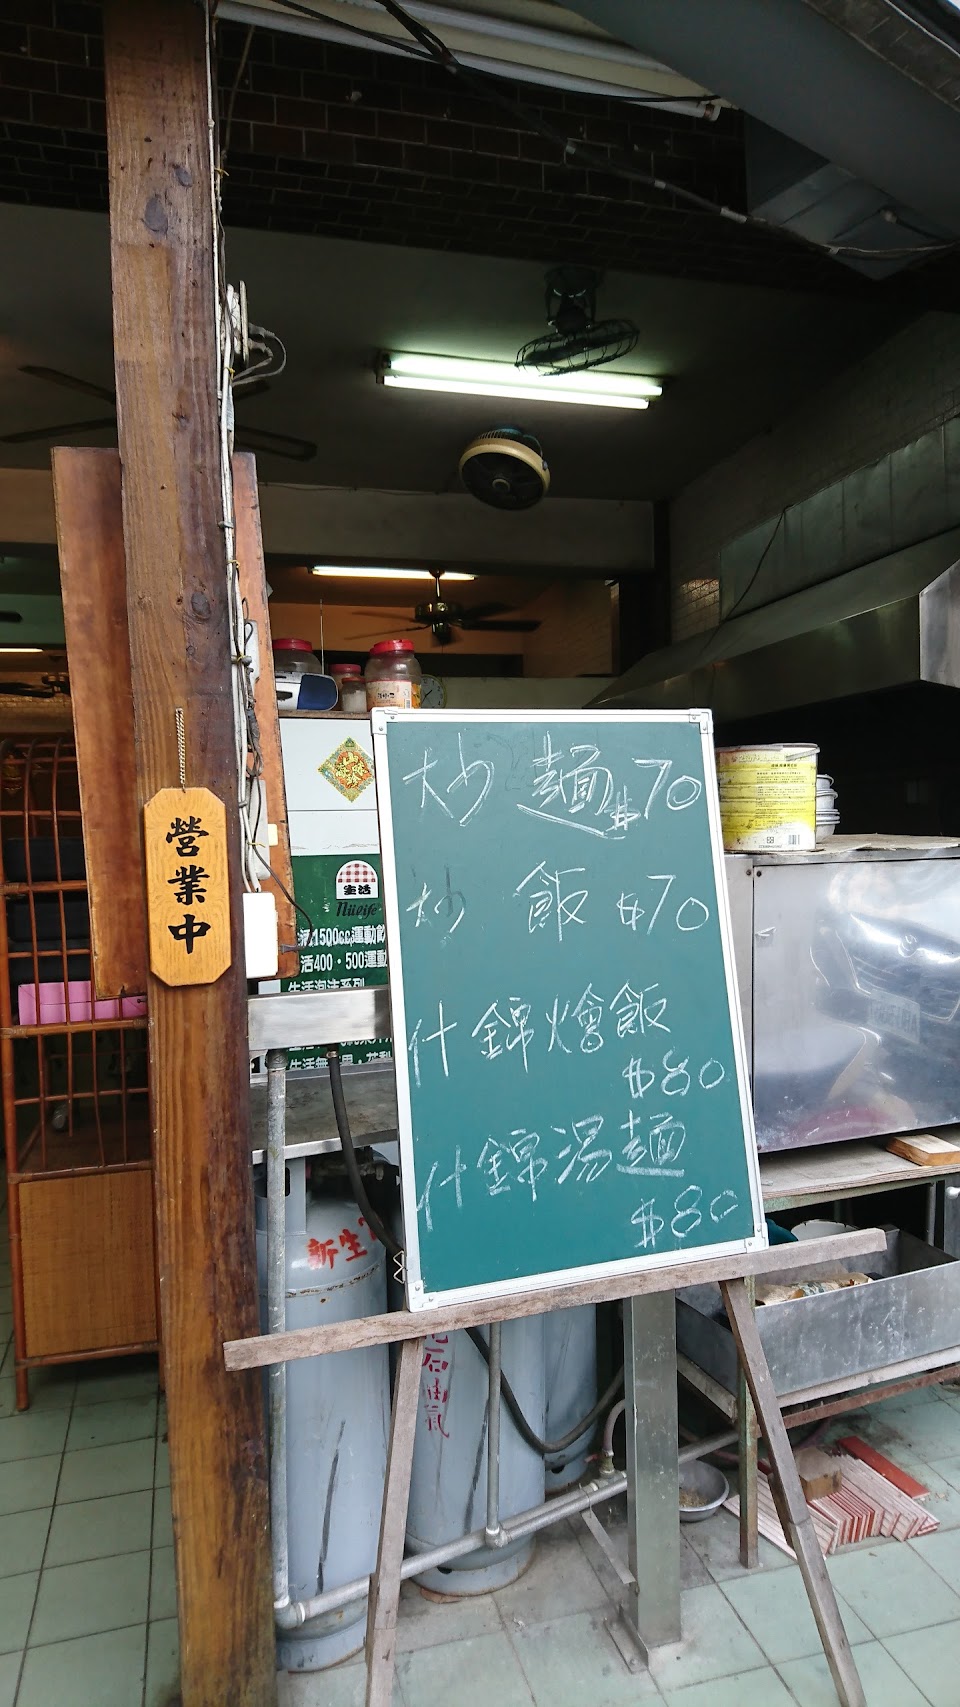 營業中
炒麵$70
炒飯$70
什錦燴飯
$80
什錦湯麵
$80
生活
Nülife
活1500cc運動飲
活400·500運動
生活泡沫系列
新生
石油氣